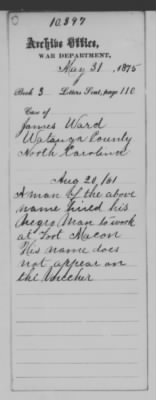 10397
Archive Office,
WAR DEPARTMENT,
May 31, 1875
Book 3 Letters Sent, page 110
Case of
James Ward
Watauga County
North Carolina
Aug 20/61
A man of the above
name hired his
negro man to work
at Fort Macon
His name does
not appear on
the Voucher